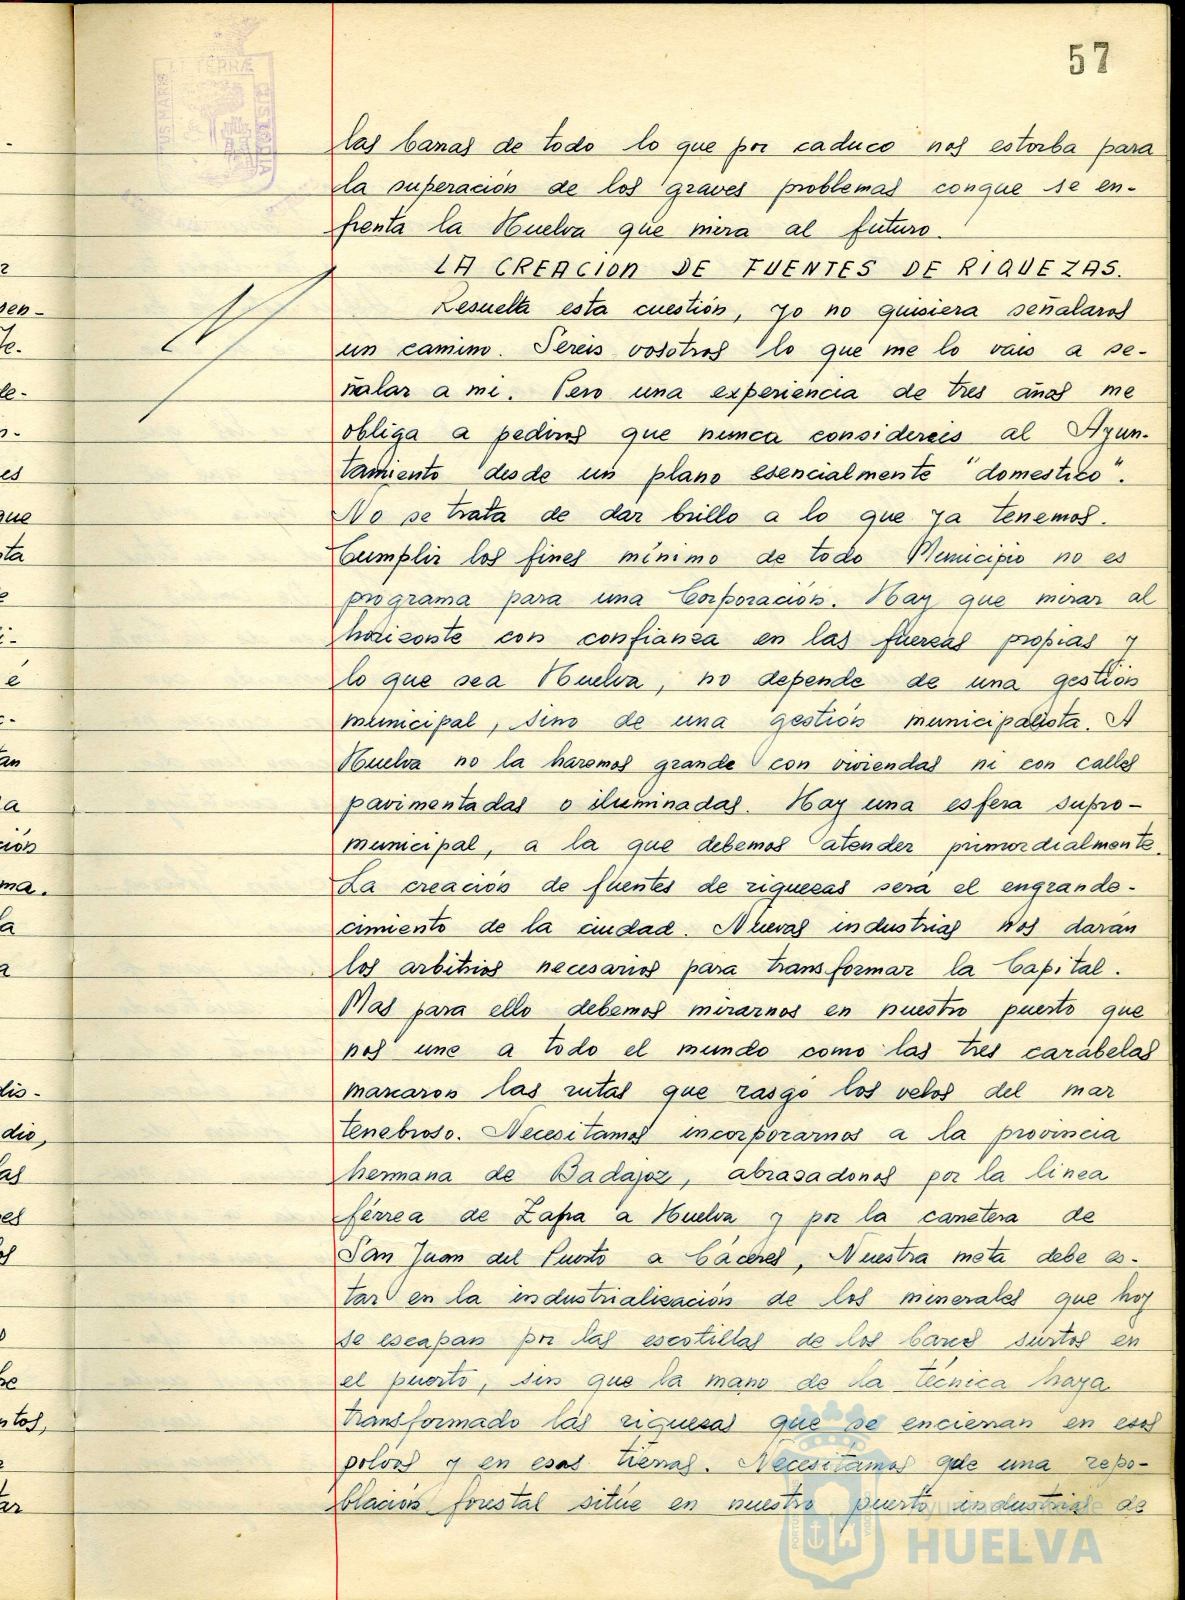 57
las barras de todo lo que por caduco nos estorba para
la superación de los graves problemas conque se en-
frenta la Huelva que mira al futuro.
LA CREACION DE FUENTES DE RIQUEZAS.
Resuelta esta cuestión, yo no quisiera señalaros
un camino. Sereis vosotros lo que me lo vais a se-
ñalar a mi. Pero una experiencia de tres años me
obliga a pediros que nunca considereis al Ayun-
tamiento desde un plano esencialmente "domestico".
No se trata de dar brillo a lo que ya tenemos.
Cumplir los fines mínimo de todo Municipio no es
programa para una Corporación. Hay que mirar al
horizonte con confianza en las fuerzas propias y
lo que sea Huelva, no depende de una gestión
municipal, sino de una gestión municipalista. A
Huelva no la haremos grande con viviendas ni con calles
pavimentadas o iluminadas. Hay una esfera supro-
municipal, a la que debemos atender primordialmente.
La creación de fuentes de riquezas será el engrande-
cimiento de la ciudad. Nuevas industrias nos darán
los arbitrios necesarios para transformar la Capital.
Mas para ello debemos mirarnos en nuestro puerto que
nos une a todo el mundo como las tres carabelas
marcaron las rutas que rasgó los velos del mar
tenebroso. Necesitamos incorporarnos a la provincia
hermana de Badajoz, abrasadonos por la linea
férrea de Zafra a Huelva y por la carretera de
San Juan del Puerto a Cáceres, Nuestra meta debe es-
tar en la industrialización de los minerales que hoy
se escapan por las escotillas de los barcos surtos en
el puerto, sin que la mano de la técnica haya
transformado las riquezas que se encierran en esos
polvos y en esas tierras. Necesitamos que una repo-
blación forestal sitúe en nuestro puerto industrias de
HUELVA